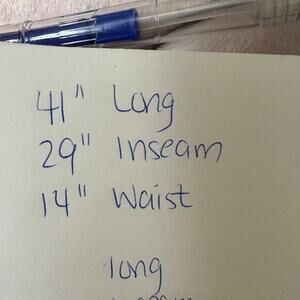 41" Long
29" Inseam
14" Waist
long